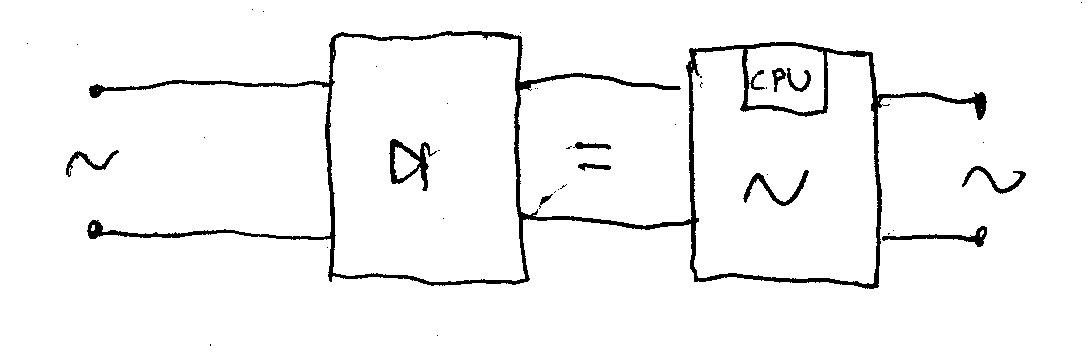 CPU
~
=
~
~